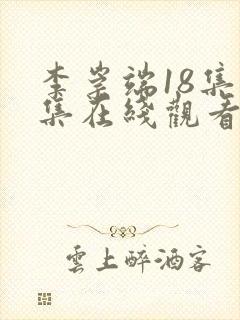 李崇端18集
集在线觀看
雲上醉酒客